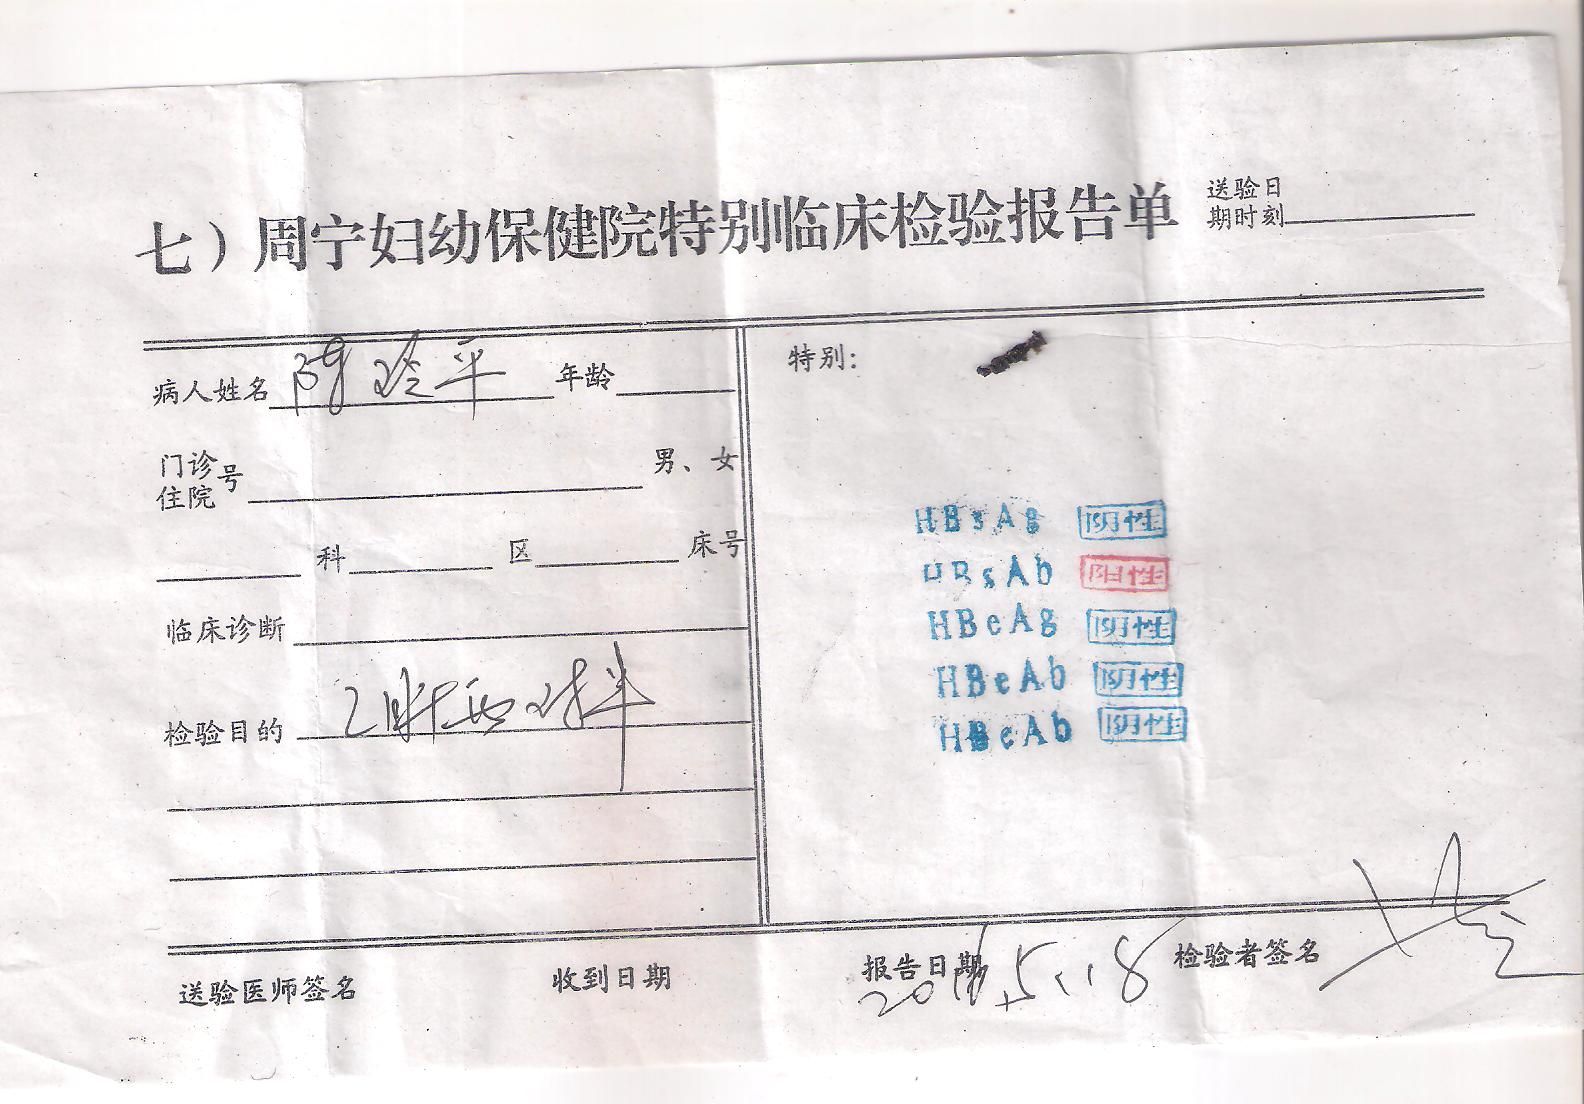 七）周宁妇幼保健院特别临床检验报告单
送验日
期时刻
病人姓名 玲平 年龄
门诊
住院
号
男、女
科 区 床号
临床诊断
检验目的 乙肝两对半
特别：
HBsAg 阴性
HBsAb 阳性
HBeAg 阴性
HBeAb 阴性
HBcAb 阴性
送验医师签名 收到日期 报告日期 检验者签名